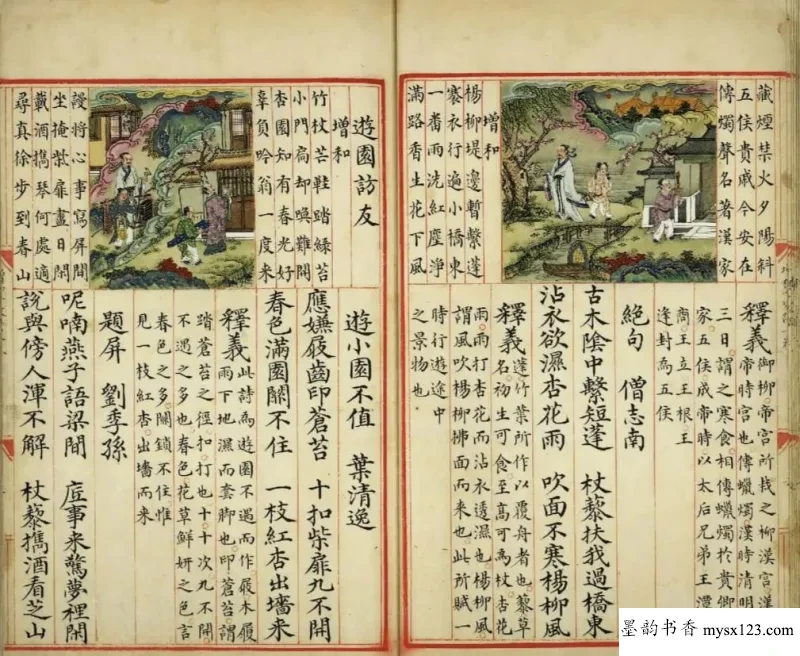 藏煙禁火夕陽斜
五侯貴戚今安在
傳燭聲名著漢家
增和
楊柳堤邊暫繫蓬
褰衣行遍小橋東
一番雨洗紅塵淨
滿路香生花下風
釋義 御柳帝宮所栽之柳漢宮漢
帝時宮也傳蠟燭漢時清明
三日謂之寒食相傳蠟燭於貴卿
家五侯成帝時以太后兄弟王譚
商王立王根王
逢封為五侯
絕句 僧志南
古木陰中繫短蓬 杖藜扶我過橋東
沾衣欲濕杏花雨 吹面不寒楊柳風
釋義 蓬竹葉所作以覆舟者也藜草
名初生可食至高可為杖杏花
雨雨打杏花而沾衣透濕也楊柳風
謂風吹楊柳拂面而來也此所賦一
時行遊途中
之景物也
遊園訪友
增和
竹杖芒鞋踏綠苔
小門扃却嘆難開
杏園知有春光好
辜負吟翁一度来
謾將心事寫屏間
坐掩柴扉盡日閒
載酒擕琴何處適
尋真徐步到春山
遊小園不值 葉清逸
應嫌屐齒印蒼苔 十扣柴扉九不開
春色滿園關不住 一枝紅杏出墻来
釋義 此詩為遊園不遇而作屐木履
雨下地濕而套脚也印蒼苔謂
踏蒼苔之徑扣打也十十次九不開
不遇之多也春色花草鮮妍之色言
春色之多關鎖不住惟
見一枝紅杏出墻而来
題屏 劉季孫
呢喃燕子語梁間 底事来驚夢裡閒
說與傍人渾不解 杖藜擕酒看芝山
墨韵书香 mysx123.com